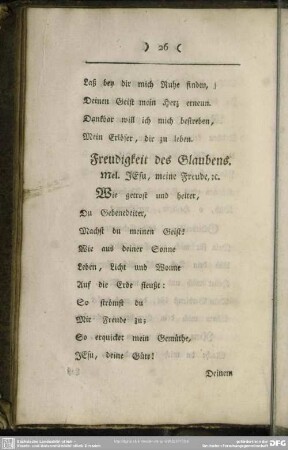 ) 26 (
Laß bey dir mich Ruhe finden,
Deinen Geist mein Herz erneun.
Dankbar will ich mich bestreben,
Mein Erlöser, dir zu leben.
Freudigkeit des Glaubens.
Mel. JEsu, meine Freude, ꝛc.
Wie getrost und heiter,
Du Gebenedeiter,
Machst du meinen Geist!
Wie aus deiner Sonne
Leben, Licht und Wonne
Auf die Erde fleußt:
So strömst du
Mir Freude zu;
So erquicket mein Gemüthe,
JEsu, deine Güte!
Deinem
DFG